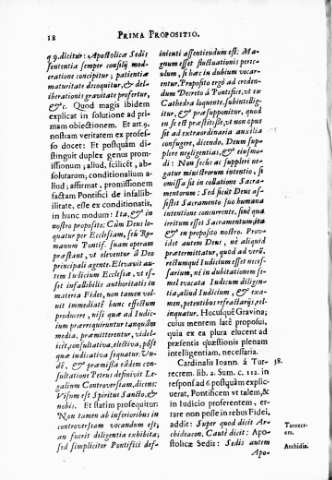 18 PRIMA PROPOSITIO.
q.9. dicitur: Apostolicæ Sedis
sententia semper consilij mode-
ratione concipitur; patientiæ
maturitate decoquitur, & deli-
berationis gravitate profertur,
&c. Quod magis ibidem
explicat in solutione ad pri-
mam obiectionem. Et art. 9.
nostram veritatem ex profes-
so docet: Et postquàm di-
stinguit duplex genus prom-
issionum; aliud, scilicèt, ab-
solutarum, conditionalium a-
liud; affirmat, promissionem
factam Pontifici de infallibi-
litate, esse ex conditionatis,
in hunc modum: Ita, & in
nostro proposito: Cùm Deus lo-
quatur per Ecclesiam, seù Ro-
manum Pontif. suam operam
præstant, vt eleventur à Deo
principali agente. Elevavit au-
tem Iudicium Ecclesiæ, vt es-
set infallibilis authoritatis in
materia Fidei, non tamen vol-
uit immediatè hunc effectum
producere, nisi quæ ad Iudi-
cium præerequiruntur tanquàm
media, præmitterentur, videl-
icit, consultativa, electiva, pòst
quæ indicativa sequatur. Un-
dè, & præmissa eâdem con-
sultatione Petrus definivit Le-
galium Controversiam, dicens:
Visum est Spiritui Sancto, &
nobis. Et statim prosequitur:
Non tamen ab inferioribus in
controversiam vocandum est,
an fuerit diligentia exhibita;
sed simpliciter Pontifici def-
inienti assentiendum est: Ma-
gnum esset fluctuationis peric-
ulum, si hæc in dubium vocar-
entur. Proposito ergò ad creden-
dum Decreto à Pontifice, vt ex
Cathedra loquente, subintellig-
itur, & præsupponitur, quod
in se est præstitisse, vt non opus
sit ad extraordinaria auxilia
confugere, dicendo, Deum sup-
plere negligentias, & eiusmo-
di: Non secùs ac suppleri ne-
gatur ministrorum intentio, si
omissa sit in collatione Sacra-
mentorum: Sed sicut Deus as-
sistit Sacramento suo humana
intentione concurrente, sinè qua
irritum esset Sacramentum, ita
& in proposito nostro. Prov-
idit autem Deus, nè aliquid
prætermittatur, quod ad verū,
rectumquè Iudicium esset neces-
sarium, nè in dubitationem se-
mel vocata Iudicum diligen-
tia, aliud Iudicium, & exa-
men, potentibus refractarijs, rel-
inquatur. Hocusquè Gravina;
cuius mentem latè proposui,
quia ex ea plura elucent ad
præsentis quæstionis plenam
intelligentiam, necessaria.
Cardinalis Ioann. à Tor- 38.
recrem. lib. 2. Sum. c. 112. in
respons ad 6 postquàm explic-
uerat, Pontificem vt talem, &
in Iudicio proferentem, er-
rare non posse in rebus Fidei,
addit: Super quod dicit Ar-
chidiacon. Cautè dicit: Apo-
stolicæ Sedis: Sedis autem
Apo-
Turrecr-
em.
Archidia.